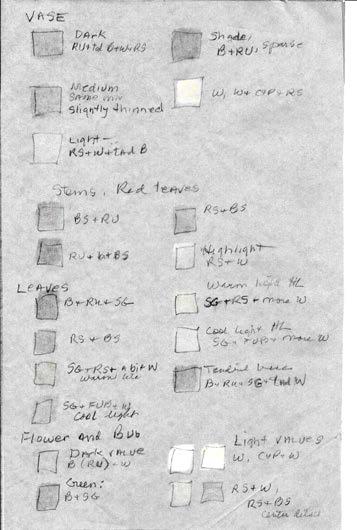 VASE
Dark
Shade,
B+RU, sparse
Medium
same mix
slightly thinned
W, W + CYP + RS
Light -
RS + W + tad B
Stems, Red leaves
BS + RU
RS + BS
RU + b + BS
Highlight
RS + W
LEAVES
B + RU + SG
Warm light HL
SG + RS + more W
RS + BS
Cool light HL
more W
SG + RS + a bit W
warm lite
B + RU + SG + tad W
SG + FUB + W
Cool light
Flower and Bud
Dark value
B (RU) + W
Light values
W, CYP + W
Green:
B + SG
RS + W,
RS + BS